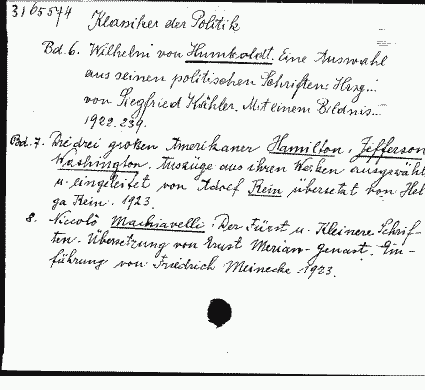 3165574
Klassiker der Politik
Bd. 6. Wilhelm von Humboldt. Eine Auswahl
aus seinen politischen Schriften: Hrsg...
von Siegfried Kähler. Mit einem Bildnis...
1922. 239.
Bd. 7. Die drei großen Amerikaner Hamilton, Jefferson
Washington. Auszüge aus ihren Werken ausgewählt
u. eingeleitet von Adolf Rein übersetzt von Hel-
ga Rein. 1923.
8. Niccolò Machiavelli. Der Fürst u. Kleinere Schrif-
ten. Übersetzung von Ernst Merian-Genast. Ein-
führung von Friedrich Meinecke 1923.